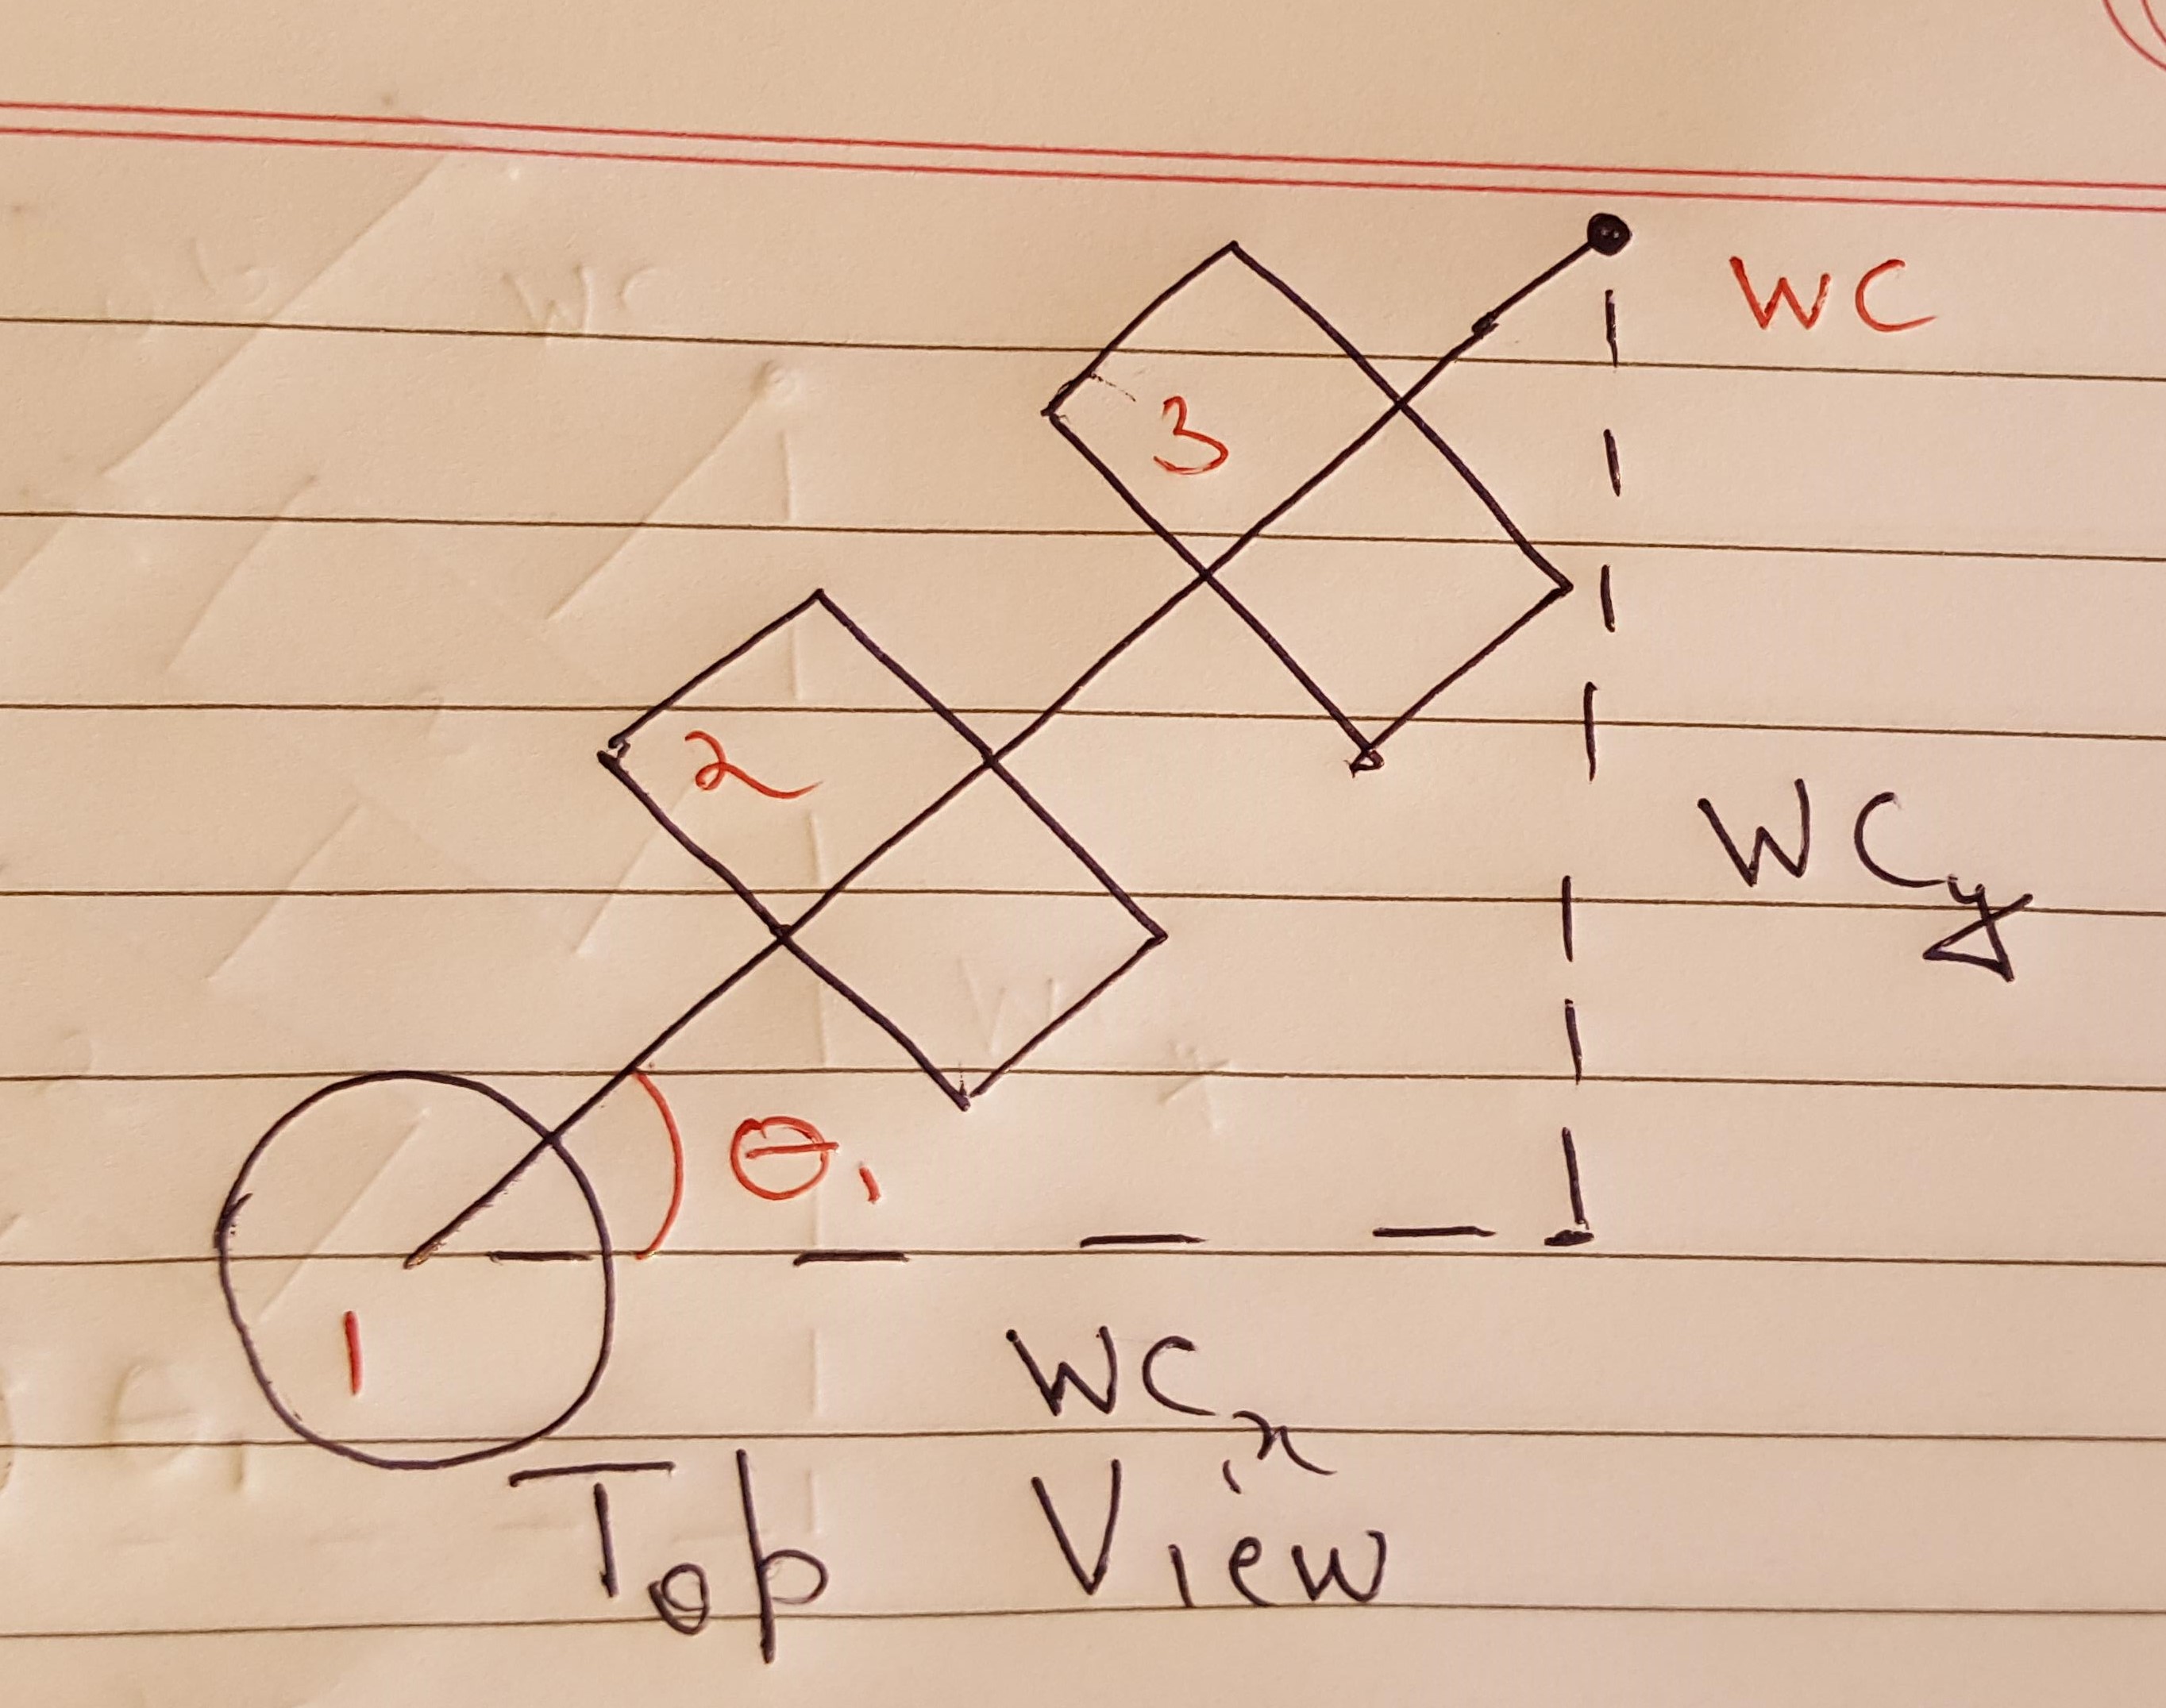 WC
3
2
WCy
θ1
1
WCx
Top View